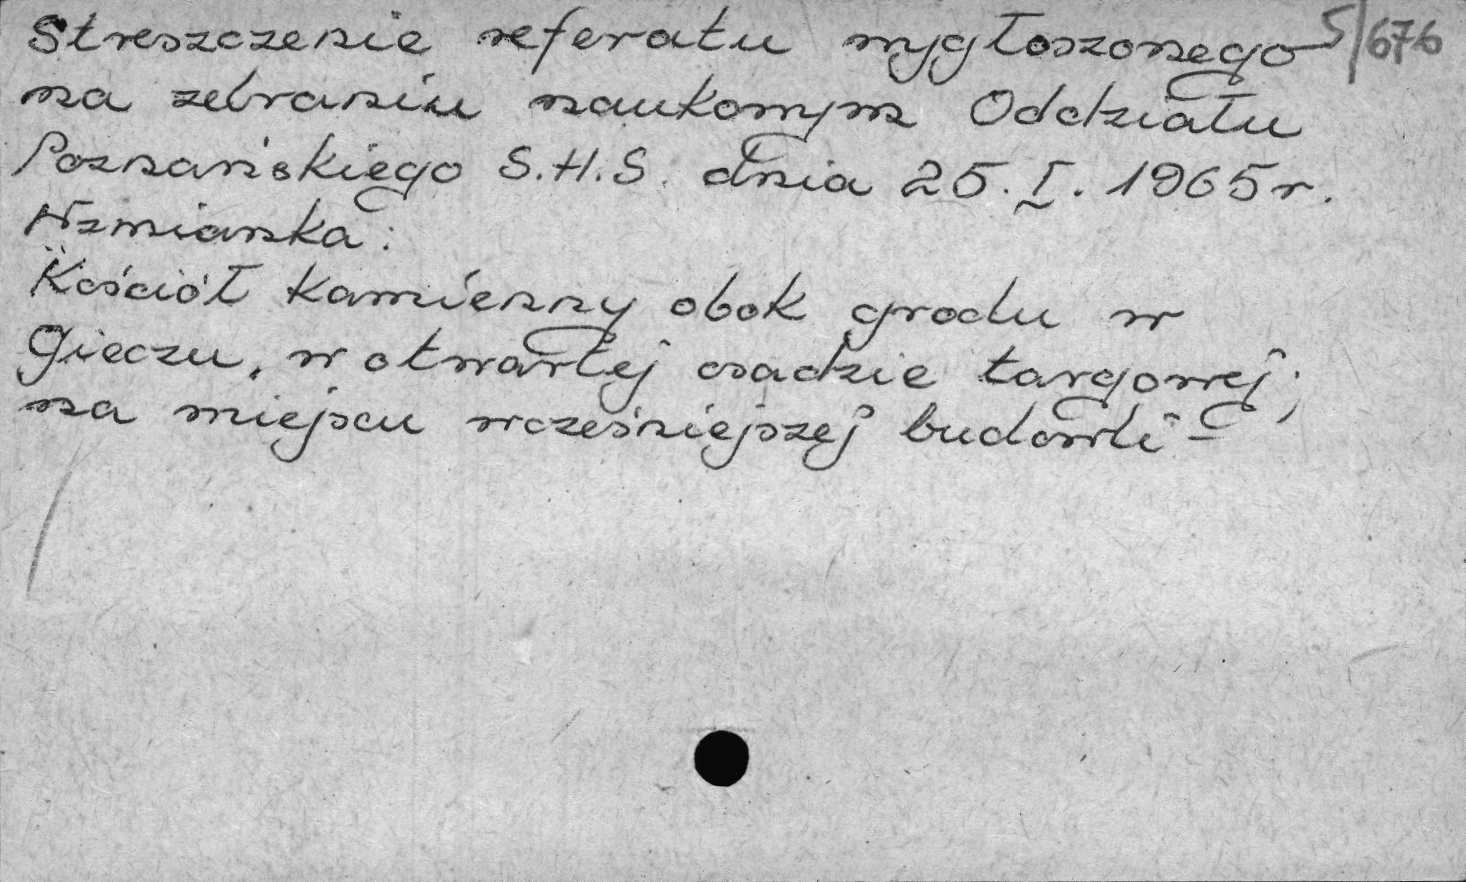 Streszczenie referatu wygłoszonego 5/676
na zebraniu naukowym Oddziału
Poznańskiego S.H.S. dnia 25.I.1965r.
Wzmianka:
Kościół kamienny obok grodu w
Gieczu, w otwartej osadzie targowej;
na miejscu wcześniejszej budowli –